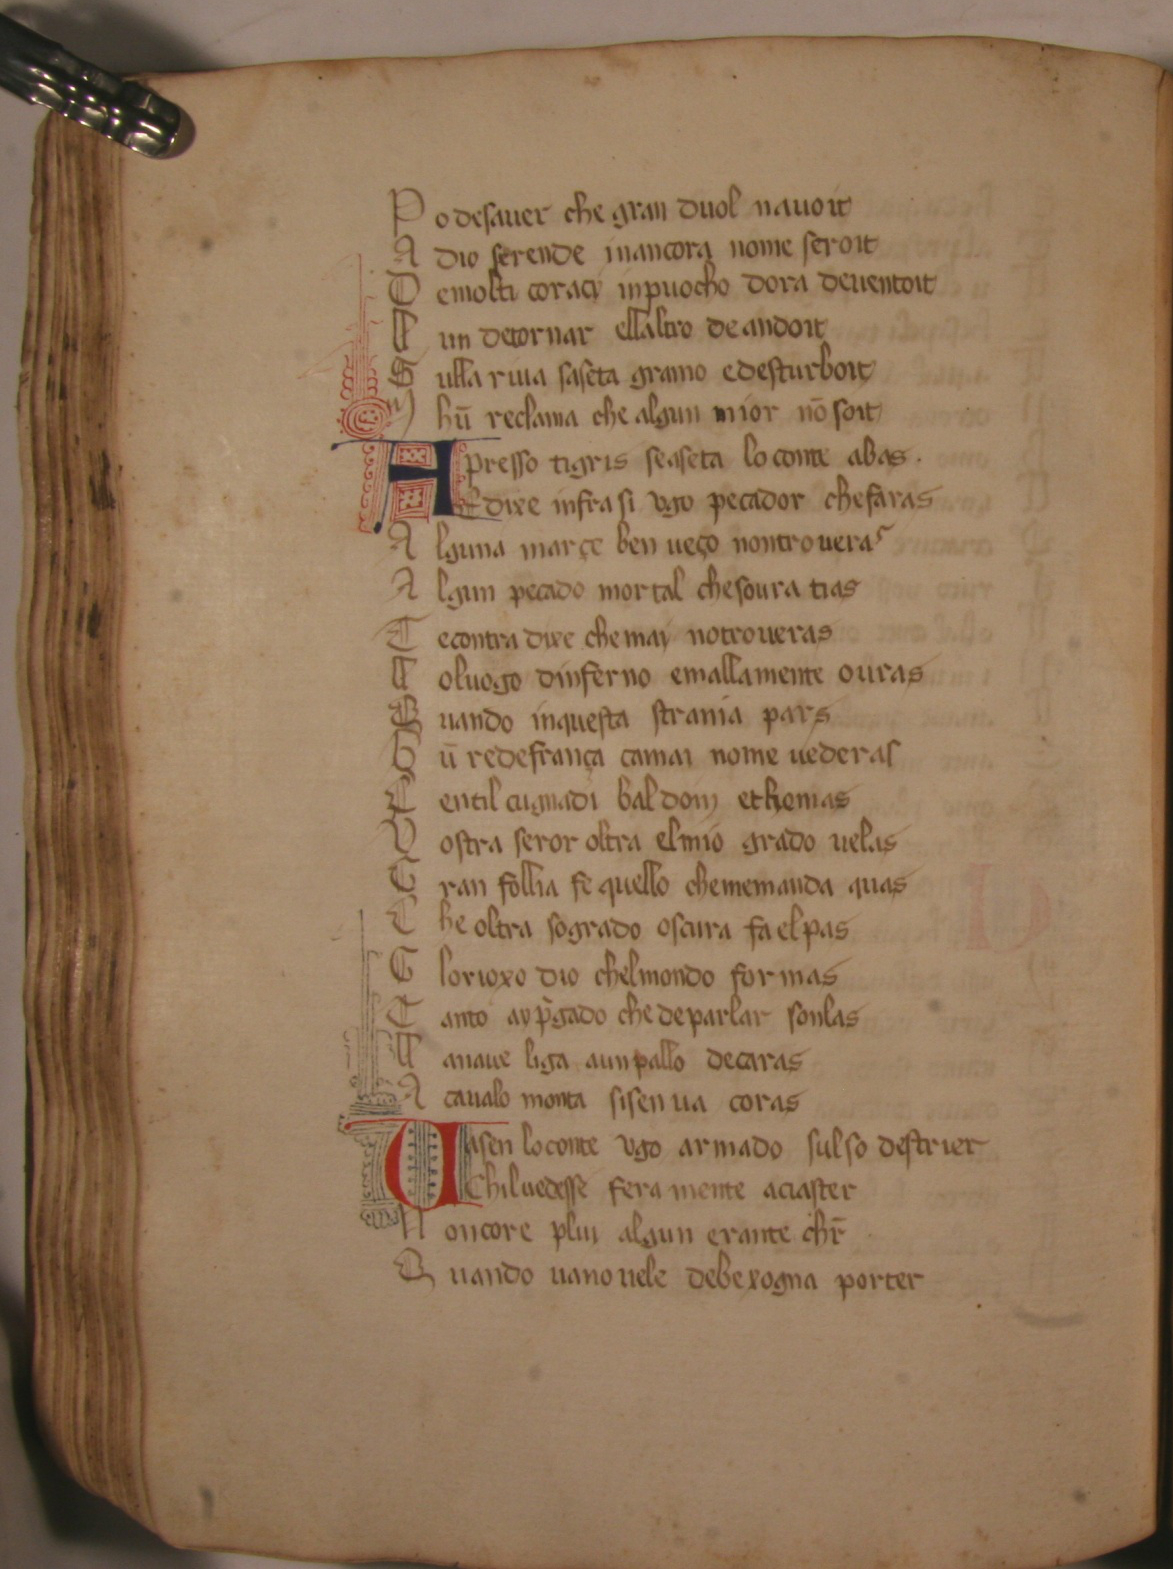 P o desauer che gran duol nauoit
A dio serende in ancora nome seroit
D emolti coraci inpuocho dora deuentoit
L un detornar ellaltro de andoit
S ulla riua saseta gramo edesturboit
Y hū reclama che algun mior nō soit
A presso tigris seaseta lo conte abas .
E dixe infra si vgo pecador chefaras
A lguna marçe ben ueço nontroueras
A lgun pecado mortal chesoura tias
T econtra dixe che may notroueras
L oluogo dinferno emallamente ouras
Q uando inquesta strania pars
H ū redefrança çamai nome uederas
C entil cugnadi baldoin ethomas
V ostra seror oltra elmio grado uelas
G ran follia fe quello chememanda quas
C he oltra sogrado oscura fa elpas
G lorioxo dio chelmondo formas
T anto ay p̄gado che deparlar sonlas
L anaue liga aunpallo decaras
A caualo monta sisen ua coras
V asen lo conte vgo armado sulso destrier
C hiluedesse fera mente aciaster
N oncore plui algun erante chr̄
Q uando uano uele debexogna porter